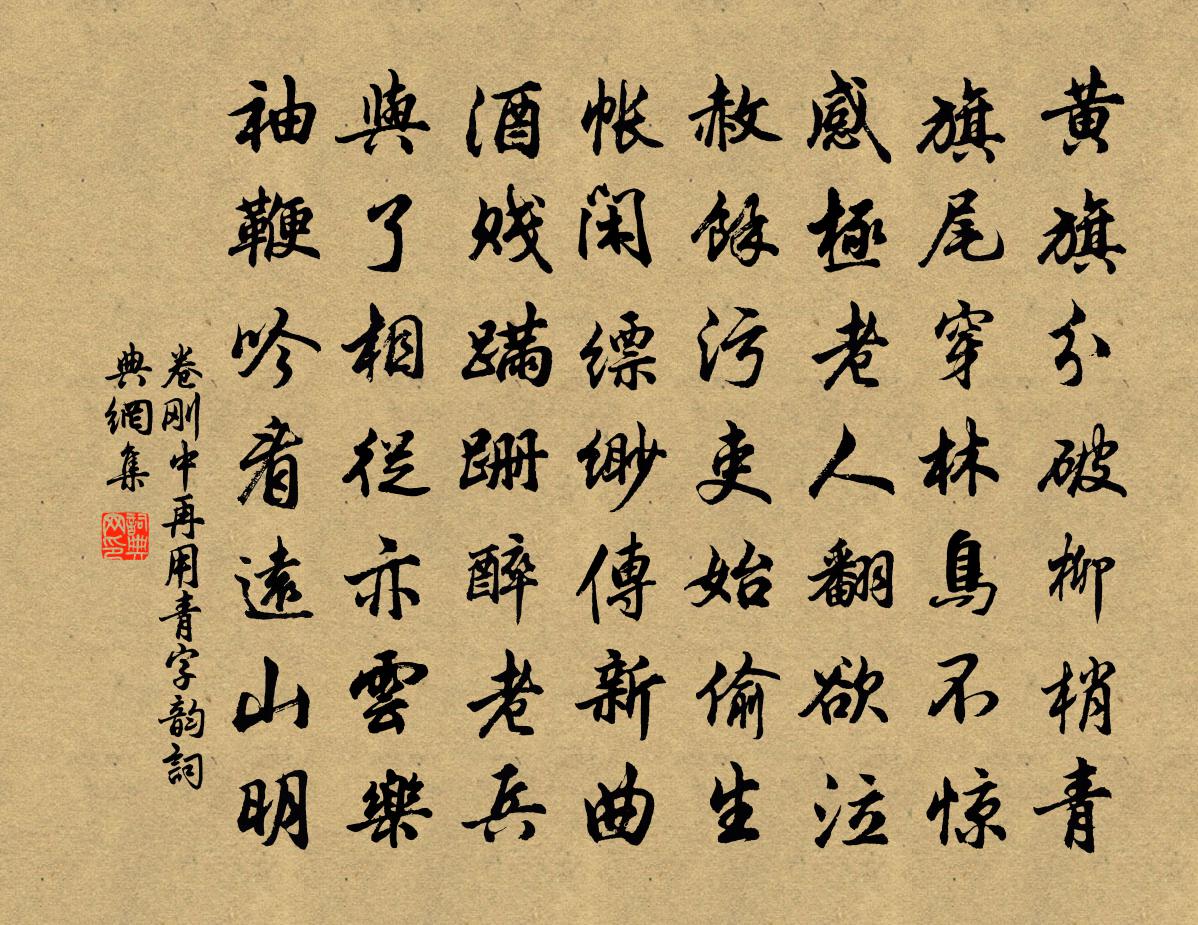 黄旗分破柳梢青
旗尾穿林鳥不惊
感極老人翻欲泣
赦餘污吏始偷生
帐闲缥缈傳新曲
酒賤蹒跚醉老兵
與了相從亦雲樂
袖鞭吟看遠山明
卷刚中再用青字韵詞
典網集
詞典网印